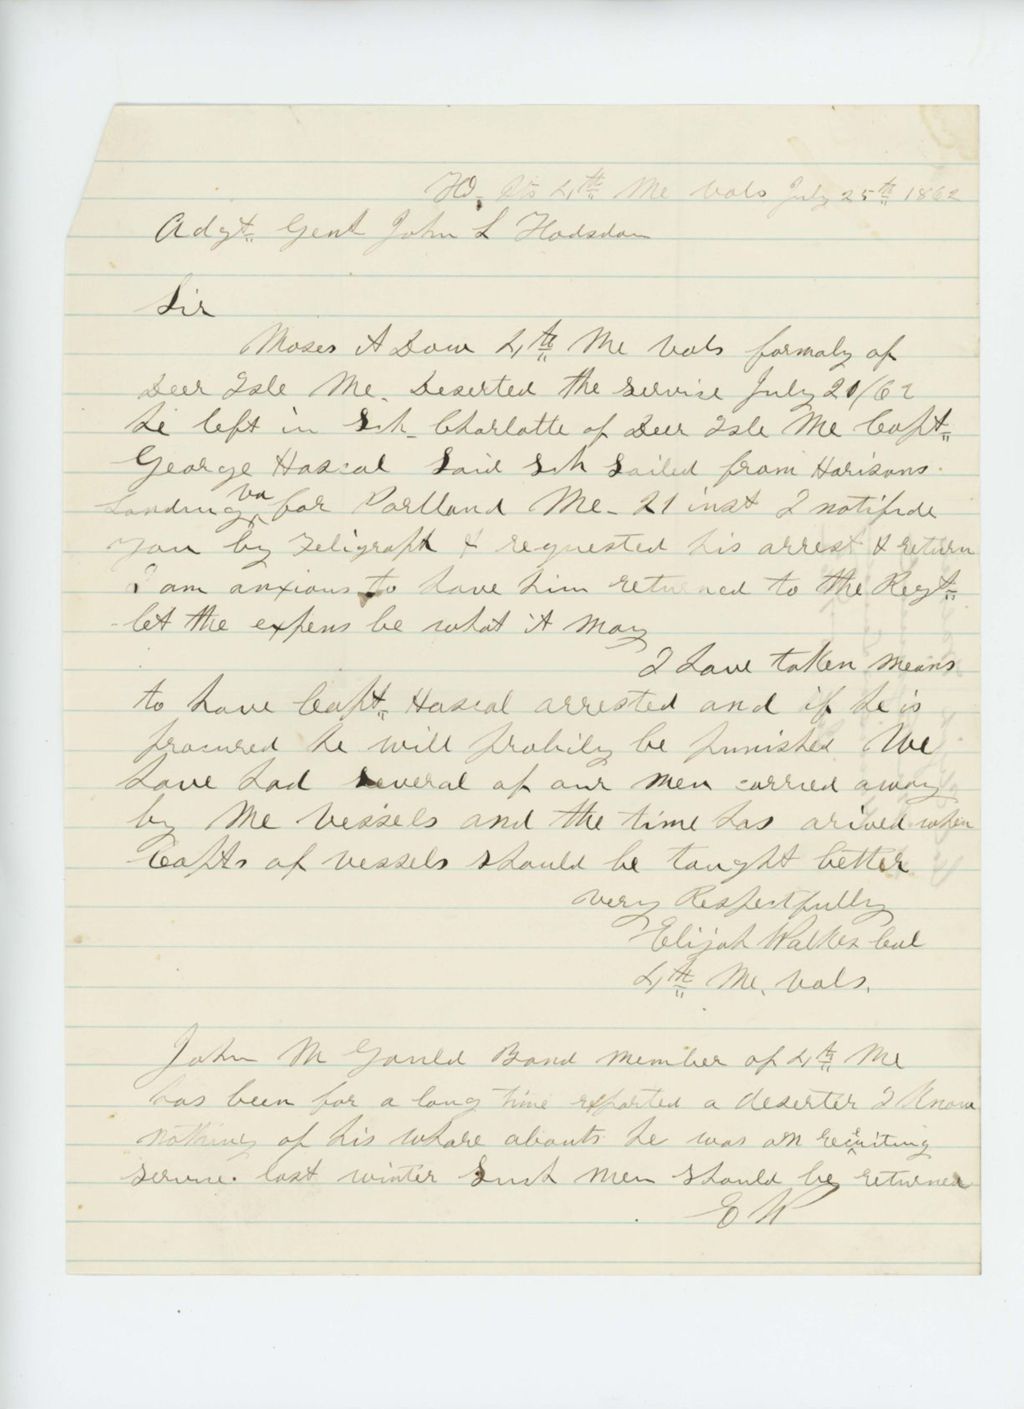 HD. Qts 4th Me Vols July 25th 1862
Adgt. Genl John L Hodsdon
Sir
Moses A Dow 4th Me Vols formaly of
Deer Isle Me. Deserted the Servise July 20/62
he left in Sch. Charlotte of Deer Isle Me Capt.
George Hascal Said Sch Sailed from Harisons
Landing Va for Portland Me. 21 inst I notifide
you by Teligraph & requested his arrest & return
I am anxious to have him returned to the Regt.
let the expens be what it may
I have taken means
to have Capt. Hascal arrested and if he is
procured he will probily be punished We
have had several of our men carried away
by Me Vessels and the time has arived when
Capts of vessels should be taught better
very Respectfully
Elijah Walker Col
4th Me. Vols.
John M Gould Band member of 4th Me
has been for a long time reported a deserter I Know
nothing of his whare abouts he was on recruiting
servise last winter Such men should be returned
E W